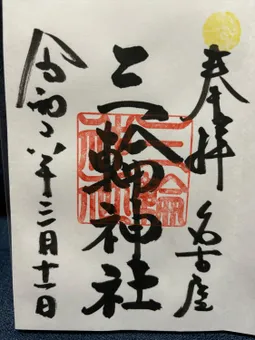 奉拝 名古屋
三輪神社
令和六年三月十一日